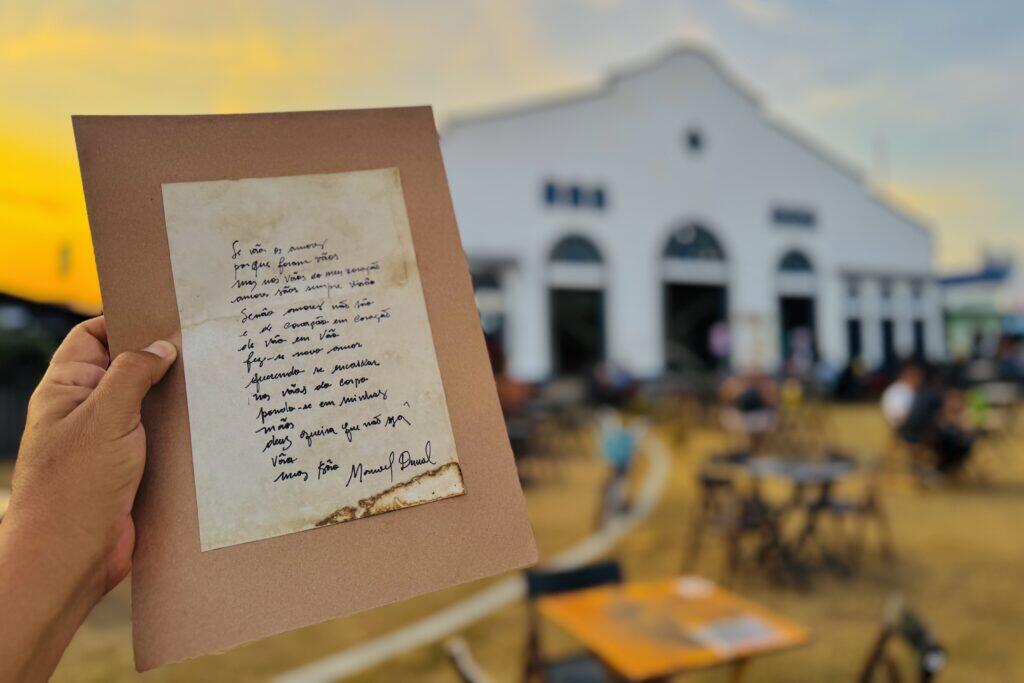 Se vão os amores
porque foram vãos
mas nos vãos do meu coração
amores vãos sempre virão
Senão amores não são
é de coração em coração
de vão em vão
fez-se novo amor
querendo se encaixar
nos vãos do corpo
pondo-se em minhas
mãos
deus queira que não seja
vão
mas